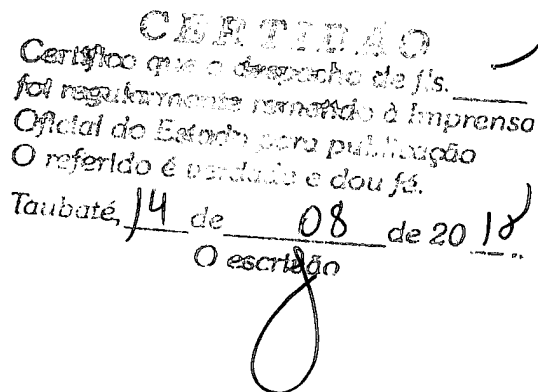 CERTIDÃO
Certifico que o despacho de fls. ____
foi regularmente remetido à Imprensa
Oficial do Estado para publicação
O referido é verdade e dou fé.
Taubaté, 14 de 08 de 20
O escrivão